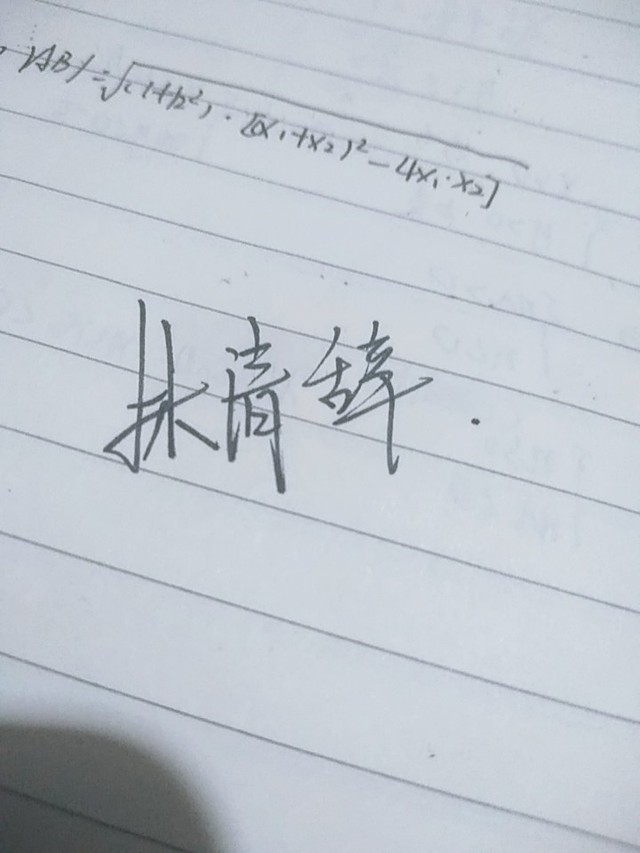 |AB|=√(1+k²)·[(x₁+x₂)²-4x₁·x₂]
林清辞.